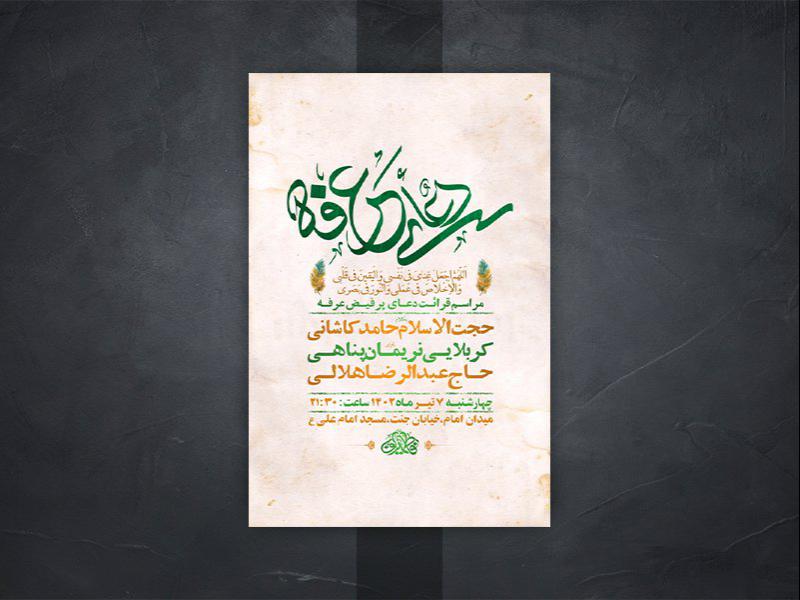 دعای عرفه
اَللّهُمَّ اجْعَلْ غِنايَ في نَفْسي وَالْيَقينَ في قَلْبي
وَالْاِخْلاصَ في عَمَلي وَالنُّورَ في بَصَري
مراسم قرائت دعای پر فیض عرفه
حجت الاسلام حامد کاشانی
کربلایی نریمان پناهی
حاج عبدالرضا هلالی
چهارشنبه ۷ تیر ماه ۱۴۰۲ ساعت: ۲۱:۳۰
میدان امام، خیابان جنت، مسجد امام علی ع